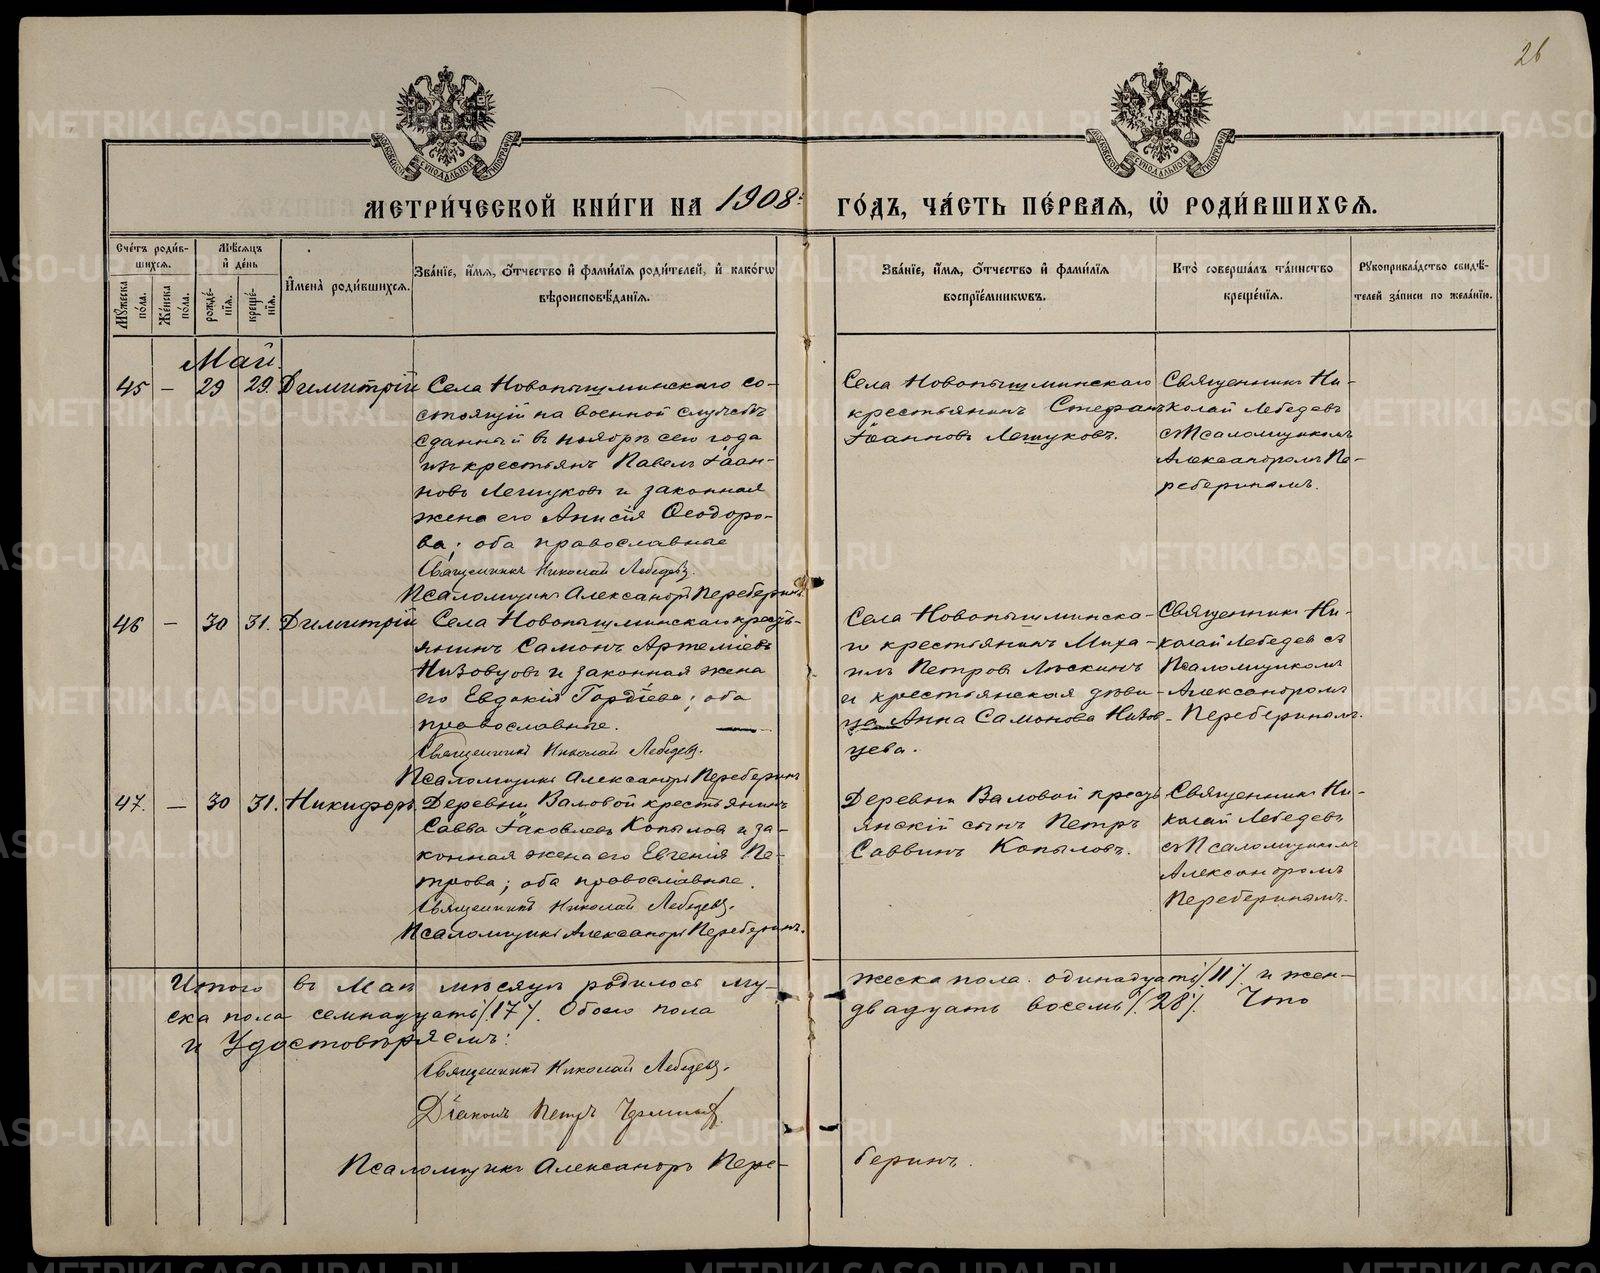 26
МЕТРИ́ЧЕСКОЙ КНИ́ГИ НА 1908: ГО́ДЪ, ЧА́СТЬ ПЕ́РВАЯ, Ѡ҆ РОДИ́ВШИХСЯ.
Сче́тъ роди́в-
шихся.
Мꙋ́жеска по́ла.
Же́нска по́ла.
Мѣ́сяцъ и҆ де́нь
рожде́-
нїя.
креще́-
нїя.
И҆мена̀ роди́вшихся.
Зва́нїе, и҆́мя, ѻ҆́тчество и҆ фами́лїя роди́телей, и҆ како́гѡ
вѣроисповѣ́данїя.
Зва́нїе, и҆́мя, ѻ҆́тчество и҆ фами́лїя
воспрїе́мникѡвъ.
Кто̀ соверша́лъ та́инство
креще́нїя.
Рꙋкоприкла́дство свидѣ́-
телей за́писи по жела́нїю.
Май.
45 — 29 29. Димитрій
Села Новопышминскаго со-
стоящій на военной службѣ
сданный въ ноябрѣ сего года
изъ крестьянъ Павелъ Іоан-
новъ Легчуковъ и законная
жена его Анисія Ѳеодоро-
ва; оба православные
Священникъ Николай Лебедевъ.
Псаломщикъ Александръ Переберинъ.
Села Новопышминскаго
крестьянинъ Стефанъ
Іоанновъ Легчуковъ.
Священникъ Ни-
колай Лебедевъ
съ Псаломщикомъ
Александромъ Пе-
реберинымъ.
46 — 30 31. Димитрій
Села Новопышминскаго кресть-
янинъ Самонъ Артеміевъ
Низовцовъ и законная жена
его Евдокія Гордіева; оба
православные.
Священникъ Николай Лебедевъ.
Псаломщикъ Александръ Переберинъ
Села Новопышминска-
го крестьянинъ Миха-
илъ Петровъ Лыскинъ
и крестьянская дѣви-
ца Анна Самонова Низов-
цева.
Священникъ Ни-
колай Лебедевъ съ
Псаломщикомъ
Александромъ
Переберинымъ.
47. — 30 31. Никифоръ.
Деревни Валовой крестьянинъ
Савва Іаковлевъ Копыловъ и за-
конная жена его Евгенія Пе-
трова; оба православные.
Священникъ Николай Лебедевъ.
Псаломщикъ Александръ Переберинъ.
Деревни Валовой кресть
янскій сынъ Петръ
Саввинъ Копыловъ.
Священникъ Ни-
колай Лебедевъ
съ Псаломщикомъ
Александромъ
Переберинымъ.
Итого въ Маѣ мѣсяцѣ родилось му- жеска пола одинадцать/11/. и жен-
ска пола семнадцать/17/. Обоего пола двадцать восемь/28/. Что
и Удостовѣряемъ:
Священникъ Николай Лебедевъ.
Діаконъ Петръ
Псаломщикъ Александръ Пере- беринъ.
METRIKI.GASO-URAL.RU